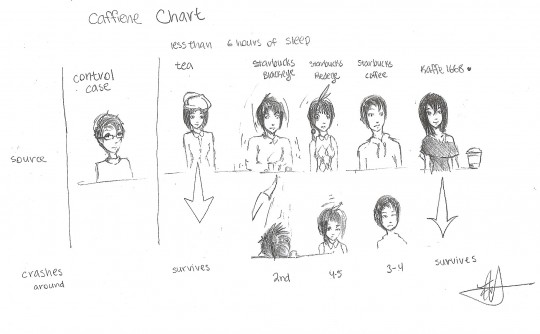 Caffiene Chart
less than 6 hours of sleep
control case
tea
Starbucks Blackeye
Starbucks
Starbucks coffee
Kaffe 1668
source
crashes around
survives
2nd
4-5
3-4
survives